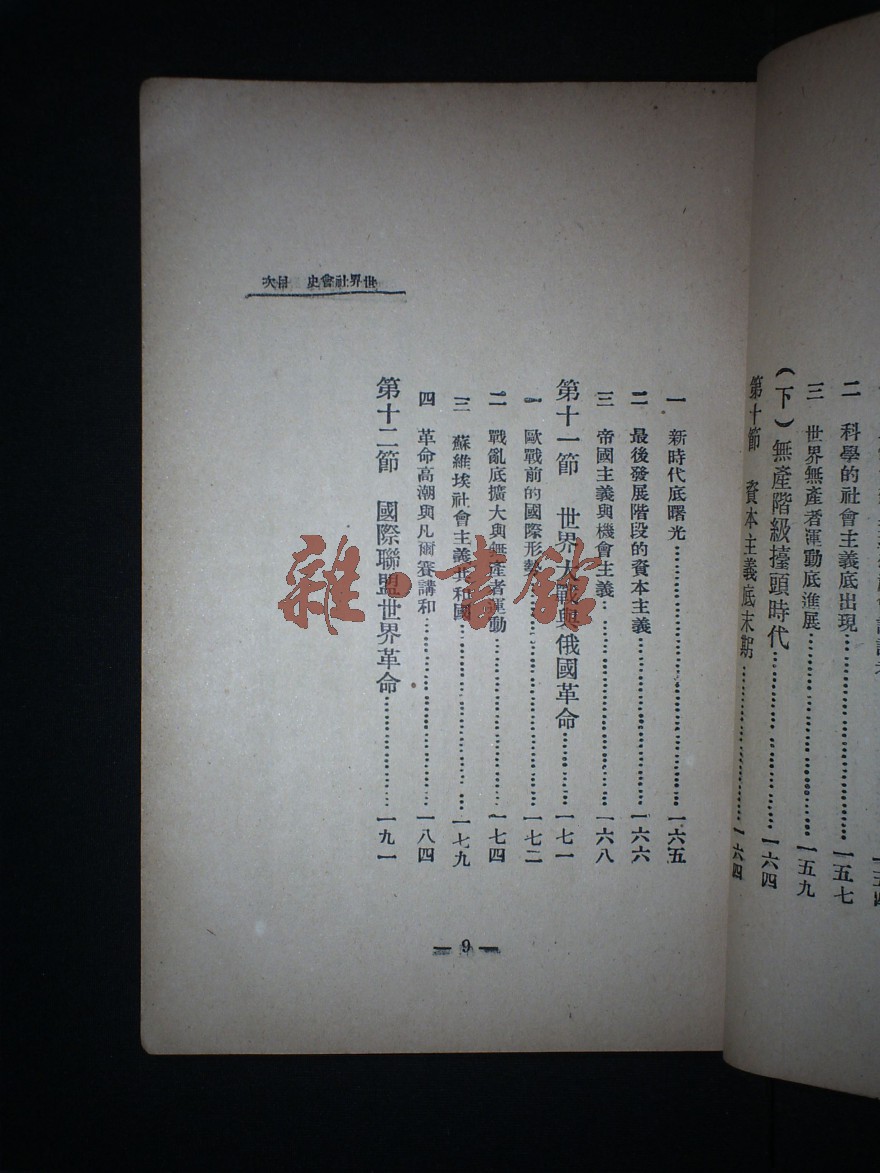 二 科學的社會主義底出現……一五七
三 世界無產者運動底進展……一五九
（下）無產階級擡頭時代……一六四
第十節 資本主義底末期……一六四
世界社會史 目次
一 新時代底曙光……一六五
二 最後發展階段的資本主義……一六六
三 帝國主義與機會主義……一六八
第十一節 世界大戰與俄國革命……一七一
一 歐戰前的國際形勢……一七二
二 戰亂底擴大與無產者運動……一七四
三 蘇維埃社會主義共和國……一七九
四 革命高潮與凡爾賽講和……一八四
第十二節 國際聯盟世界革命……一九一
— 9 —
雜·書館